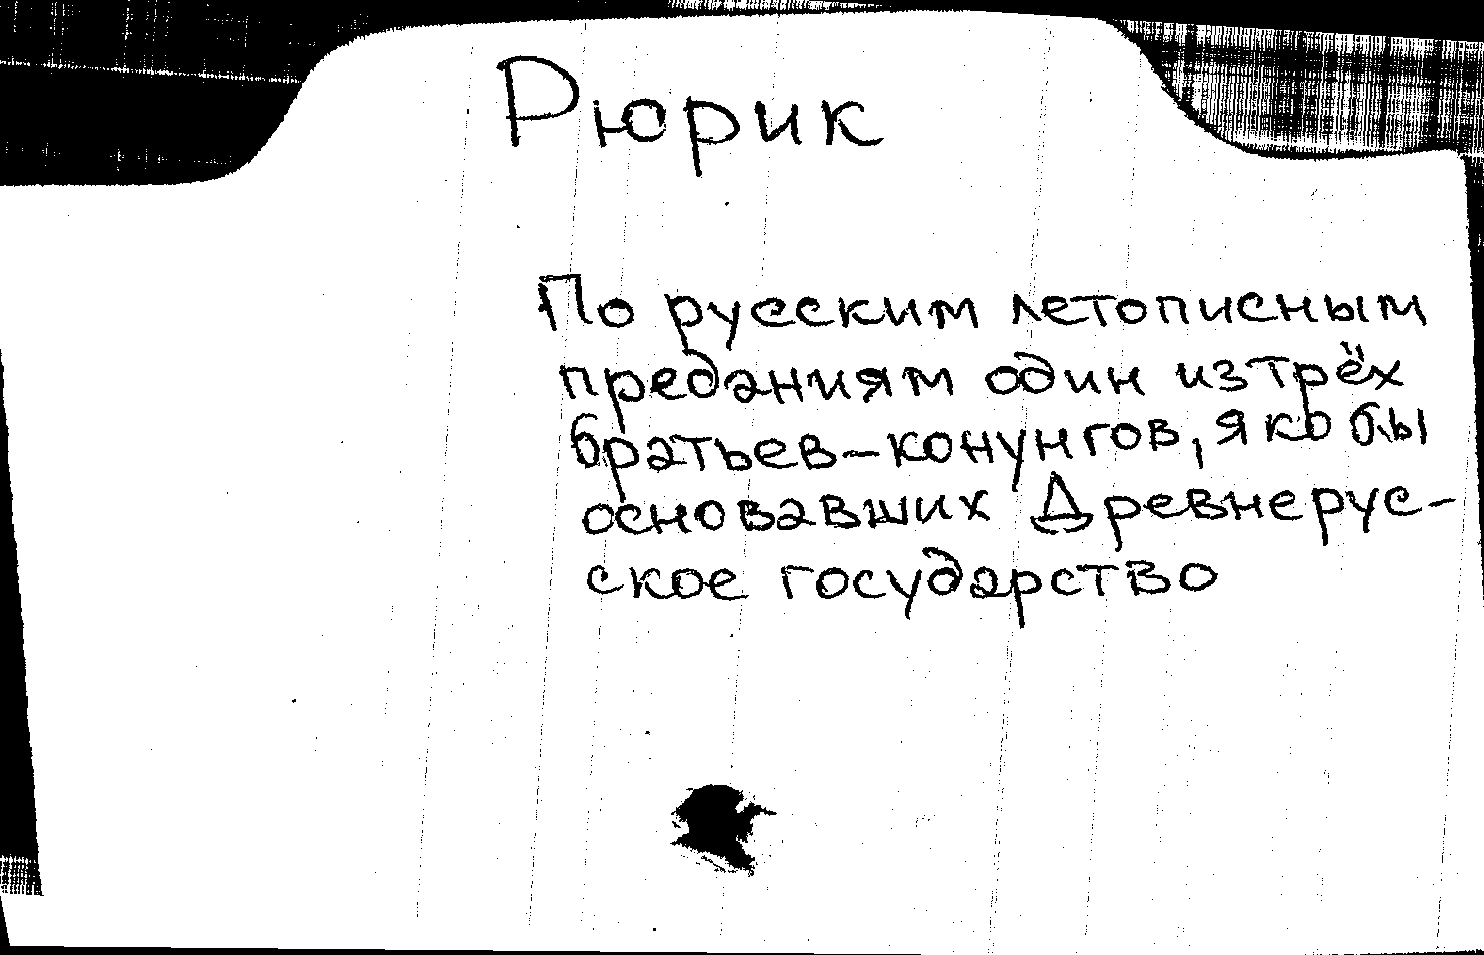 Рюрик
По русским летописным
преданиям один из трёх
братьев-конунгов, якобы
основавших Древнерус-
ское государство